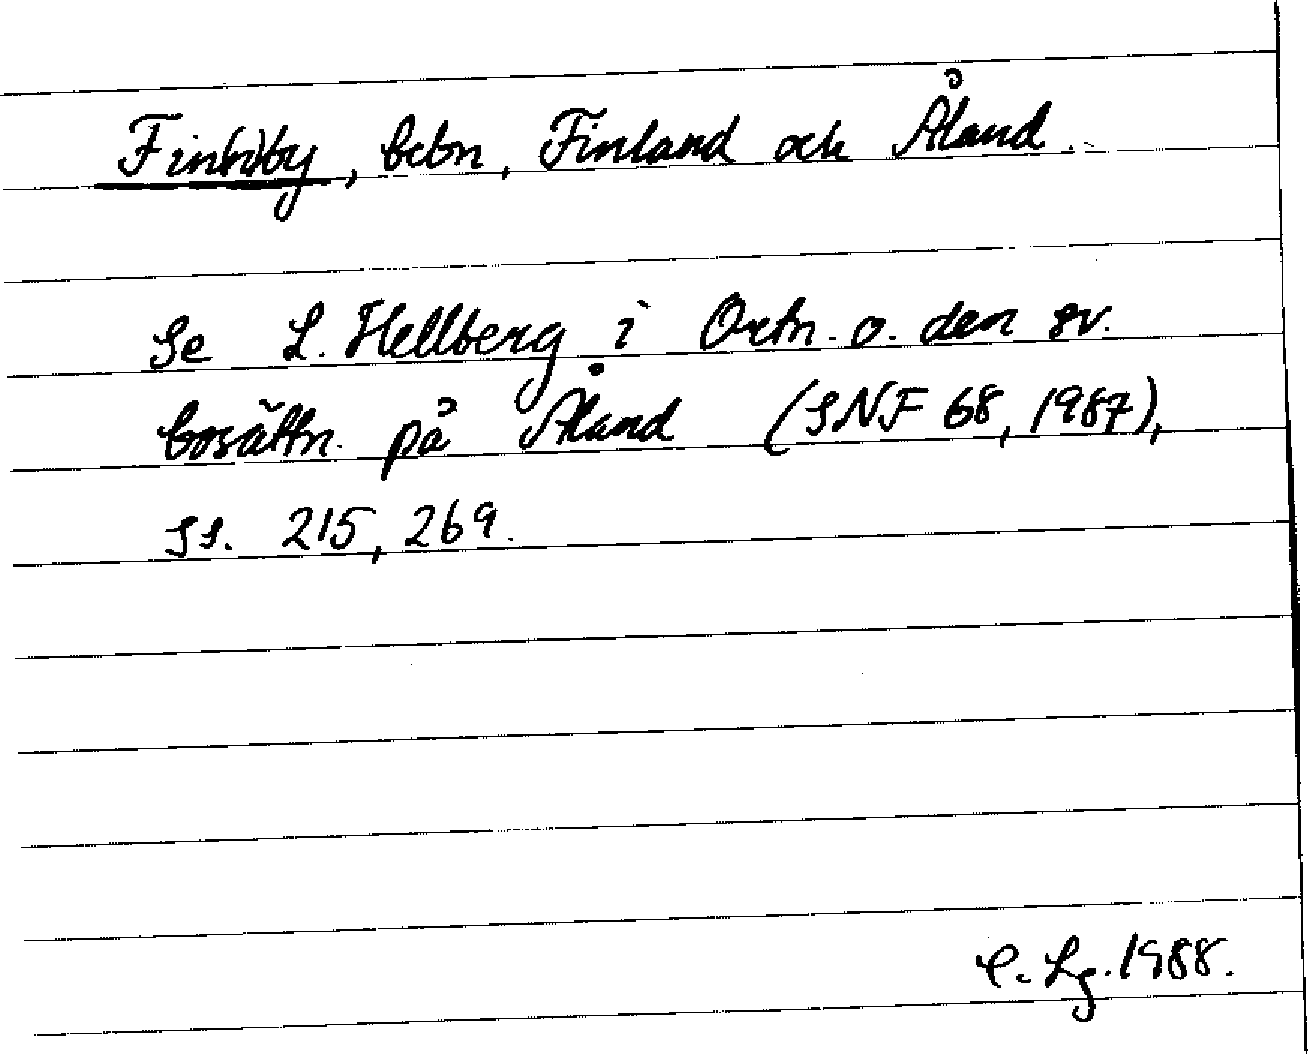 Fin(n)by, bebn, Finland och Åland.
Se L. Hellberg i Ortn. o. den sv.
bosättn. på Åland (SNF 68, 1987),
ss. 215, 269.
Lg. 1988.